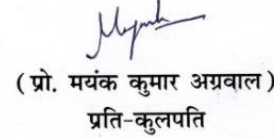 ( प्रो. मयंक कुमार अग्रवाल )
प्रति-कुलपति